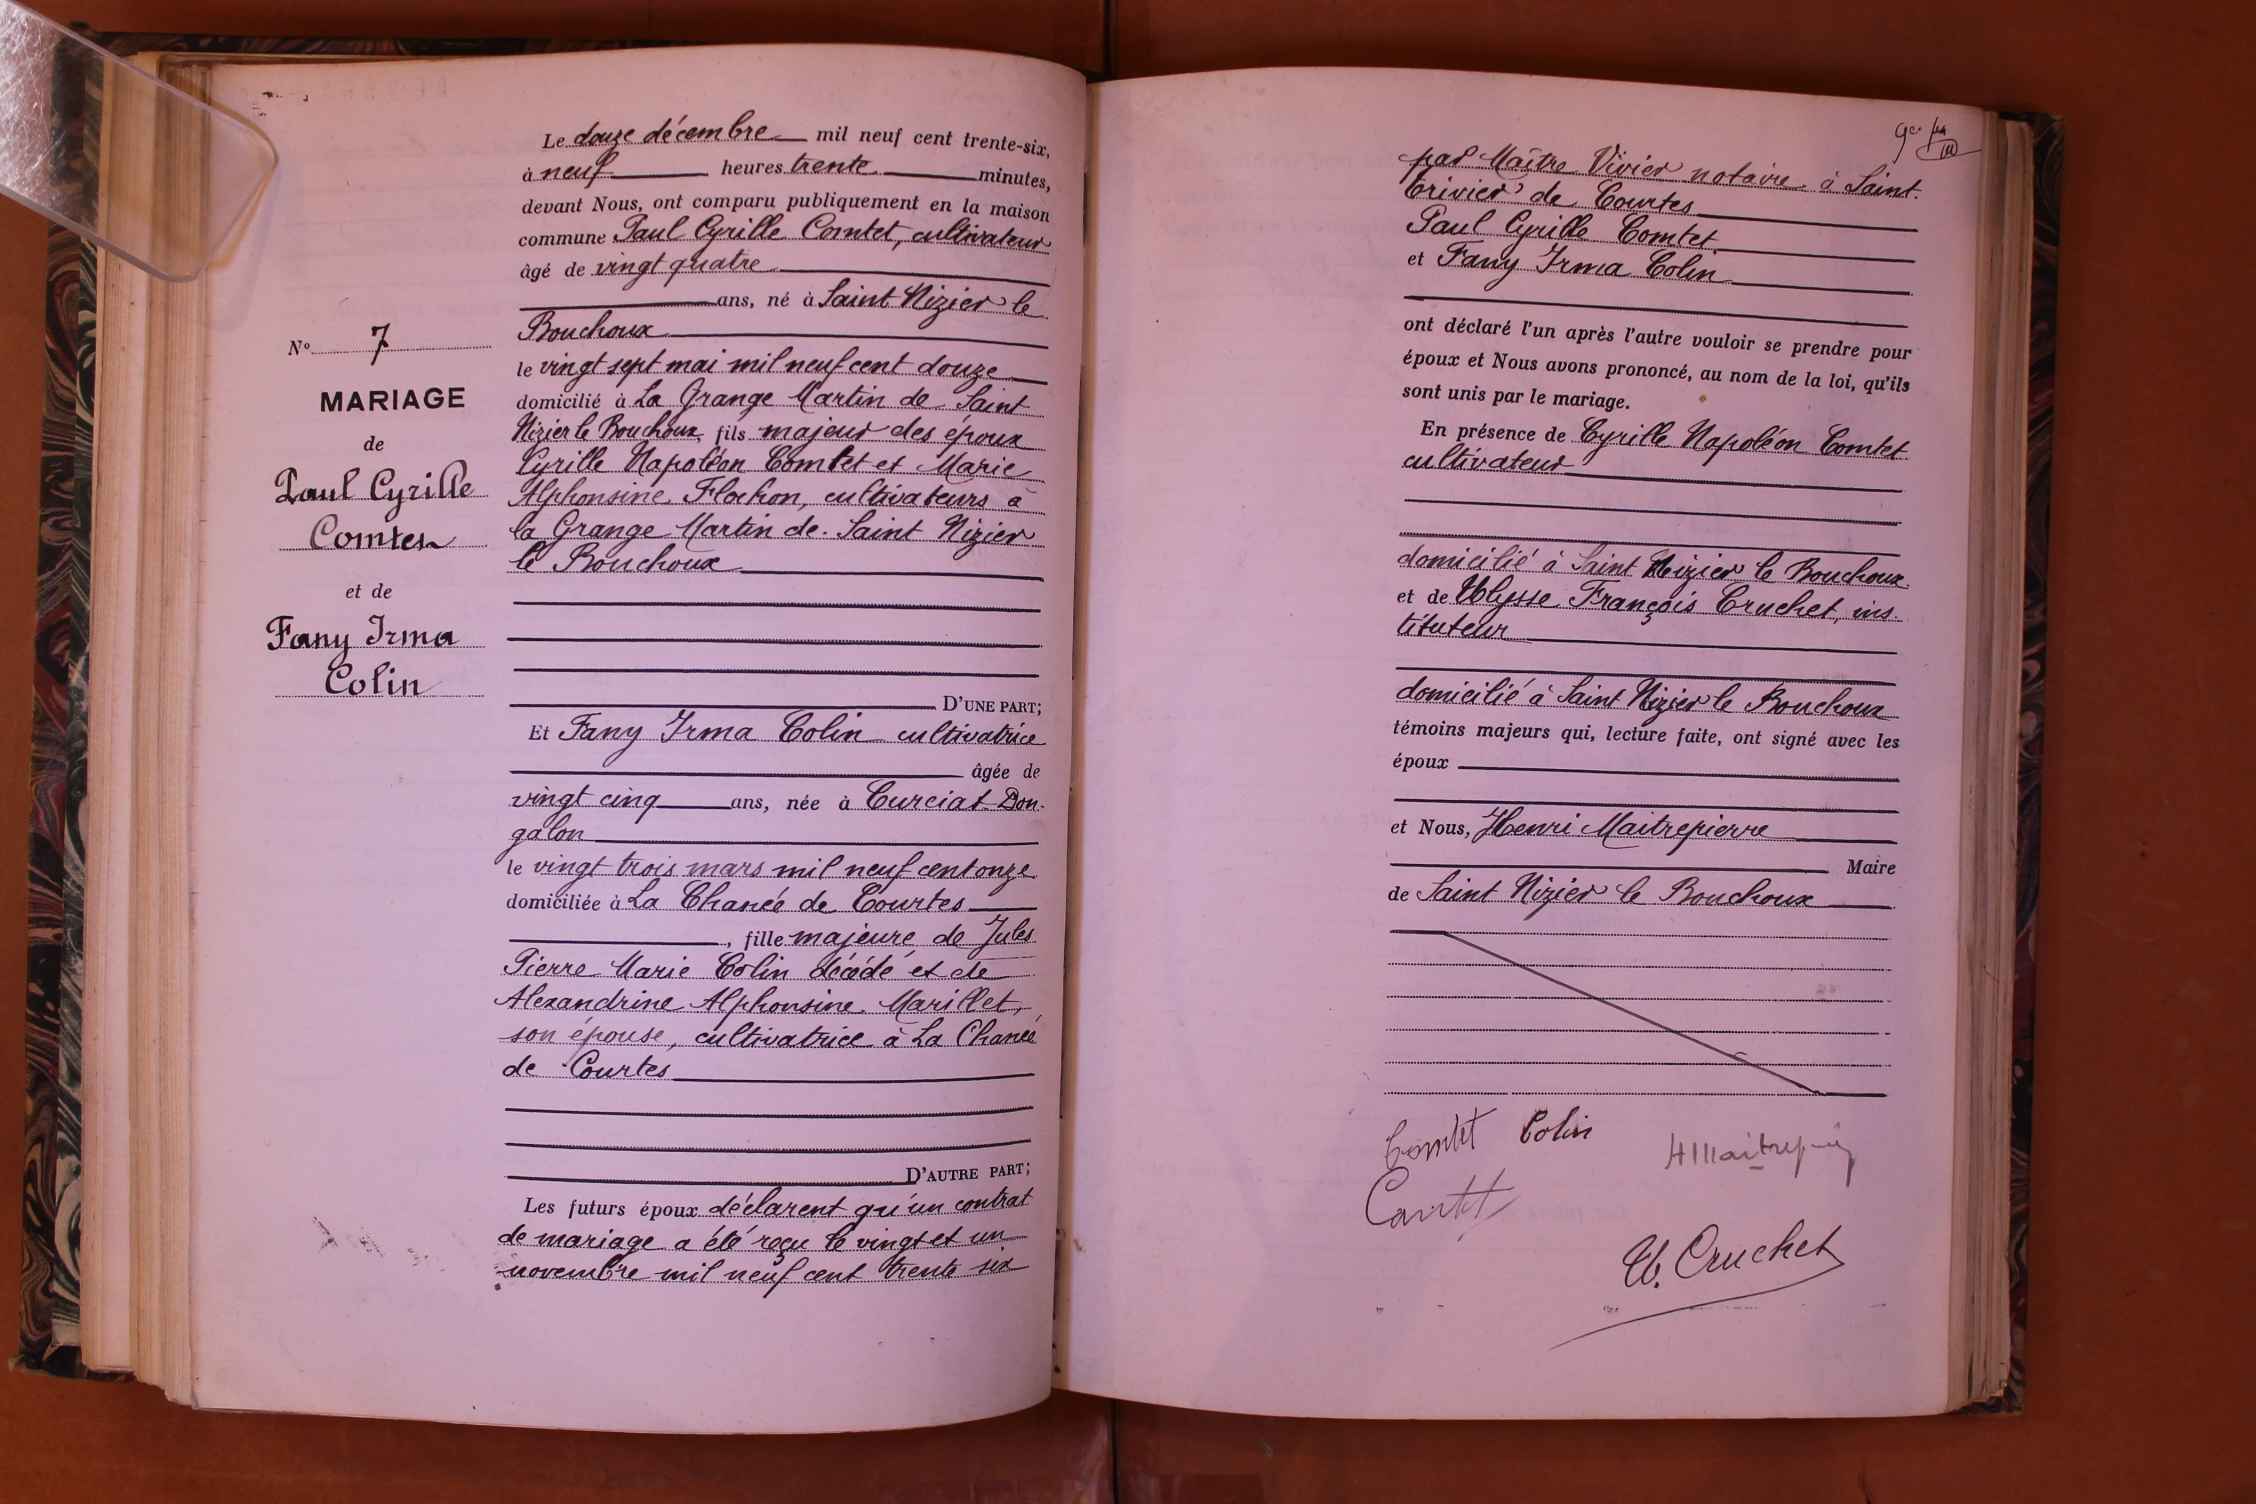 Nº 7
MARIAGE
de
Paul Cyrille
Comtet
et de
Fany Irma
Colin
Le douze décembre mil neuf cent trente-six,
à neuf heures trente minutes,
devant Nous, ont comparu publiquement en la maison
commune Paul Cyrille Comtet, cultivateur
âgé de vingt quatre
ans, né à Saint Nizier le
Bouchoux
le vingt sept mai mil neuf cent douze
domicilié à La Grange Martin de Saint
Nizier le Bouchoux, fils majeur des époux
Cyrille Napoléon Comtet et Marie
Alphonsine Flochon, cultivateurs à
la Grange Martin de Saint Nizier
le Bouchoux
D'UNE PART;
Et Fany Irma Colin cultivatrice
âgée de
vingt cinq ans, née à Curciat-Don-
galon
le vingt trois mars mil neuf cent onze
domiciliée à La Chanée de Courtes
, fille majeure de Jules
Pierre Marie Colin décédé et de
Alexandrine Alphonsine Marillet,
son épouse, cultivatrice à La Chanée
de Courtes
D'AUTRE PART;
Les futurs époux déclarent qu'un contrat
de mariage a été reçu le vingt et un
novembre mil neuf cent trente six
par Maître Vivier notaire à Saint
Trivier de Courtes
Paul Cyrille Comtet
et Fany Irma Colin
ont déclaré l'un après l'autre vouloir se prendre pour
époux et Nous avons prononcé, au nom de la loi, qu'ils
sont unis par le mariage.
En présence de Cyrille Napoléon Comtet
cultivateur
domicilié à Saint Nizier le Bouchoux
et de Ulysse François Cruchet, ins-
tituteur
domicilié à Saint Nizier le Bouchoux
témoins majeurs qui, lecture faite, ont signé avec les
époux
et Nous, Henri Maitrepierre
Maire
de Saint Nizier le Bouchoux
Comtet Colin
HMaitrepierre
Comtet
U. Cruchet